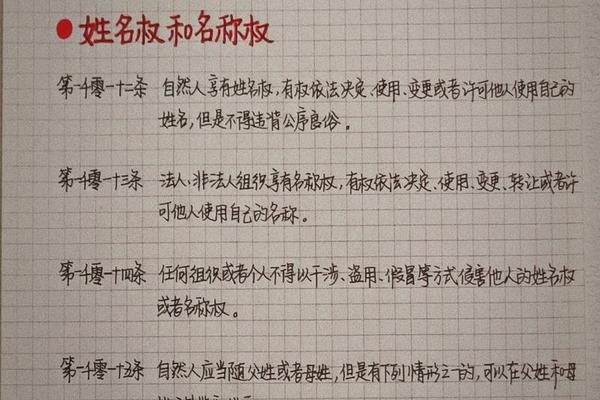 姓名权和名称权
第一千零一十二条 自然人享有姓名权,有权依法决定、使用、变更或者许可他人使用自己的
姓名,但是不得违背公序良俗。
第一千零一十三条 法人、非法人组织享有名称权,有权依法决定、使用、变更、转让或者许
可他人使用自己的名称。
第一千零一十四条 任何组织或者个人不得以干涉、盗用、假冒等方式侵害他人的姓名权
或者名称权。
第一千零一十五条 自然人应当随父姓或者母姓,但是有下列情形之一的,可以在父姓和母